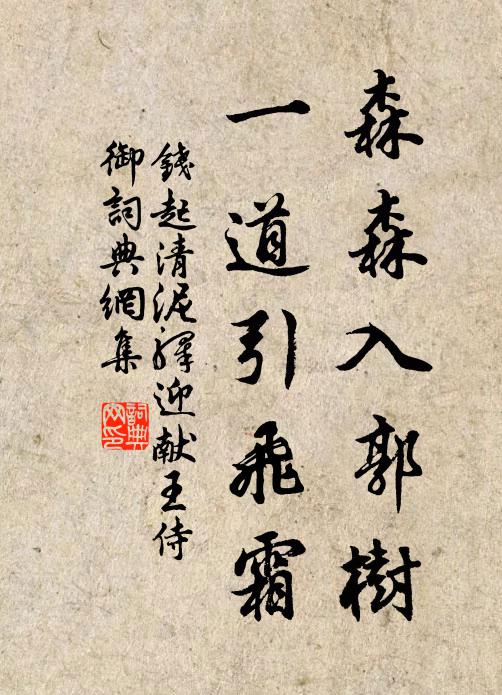 森森入郭樹
一道引飛霜
錢起清泥驛迎献王侍
御詞典網集
詞典网印